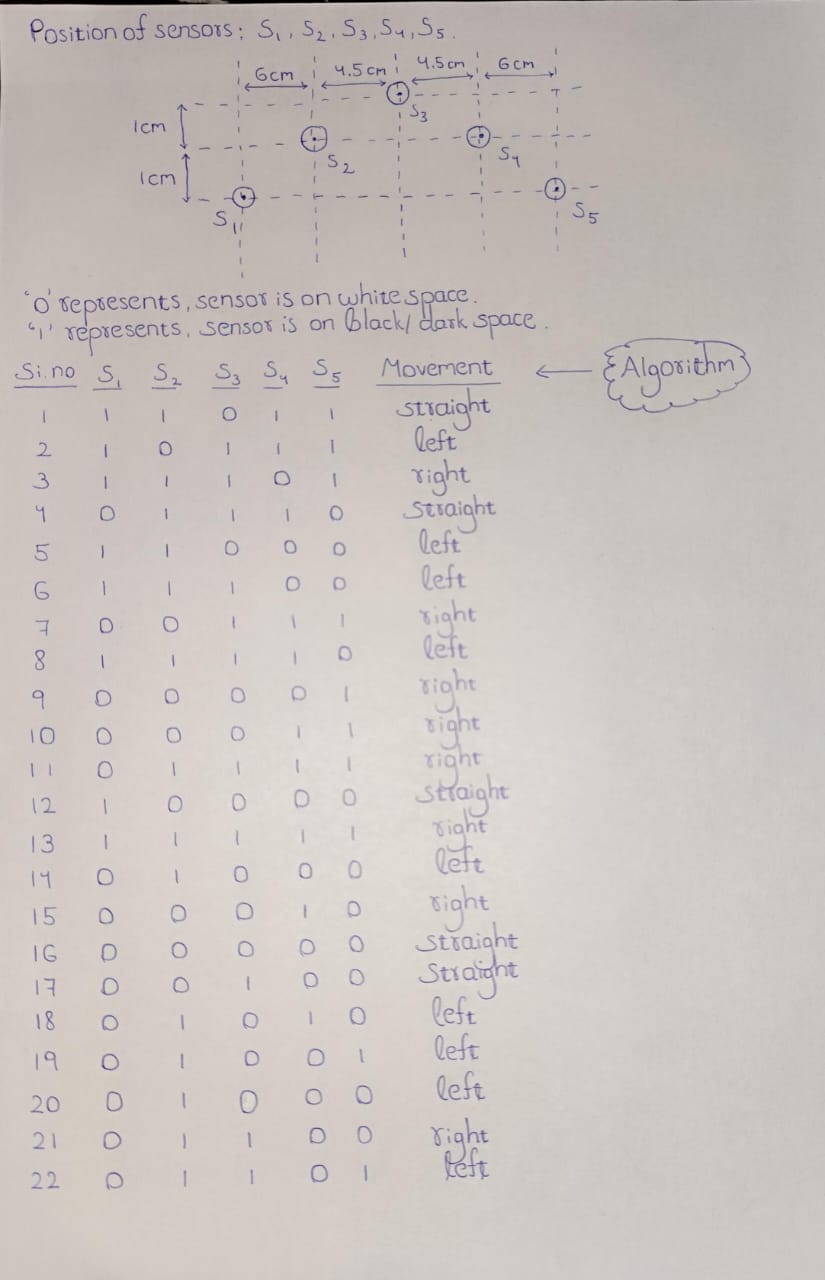 Position of sensors: S₁, S₂, S₃, S₄, S₅.
6cm 4.5cm 4.5cm 6cm
S₃
1cm
S₂ S₄
1cm
S₁ S₅
'0' represents, sensor is on white space.
'1' represents, sensor is on black/dark space.
Si.no S₁ S₂ S₃ S₄ S₅ Movement ← Algorithm
1 1 1 0 1 1 straight
2 1 0 1 1 1 left
3 1 1 1 0 1 right
4 0 1 1 1 0 straight
5 1 1 0 0 0 left
6 1 1 1 0 0 left
7 0 0 1 1 1 right
8 1 1 1 1 0 left
9 0 0 0 0 1 right
10 0 0 0 1 1 right
11 0 1 1 1 1 right
12 1 0 0 0 0 straight
13 1 1 1 1 1 right
14 0 1 0 0 0 left
15 0 0 0 1 0 right
16 0 0 0 0 0 straight
17 0 0 1 0 0 straight
18 0 1 0 1 0 left
19 0 1 0 0 1 left
20 0 1 0 0 0 left
21 0 1 1 0 0 right
22 0 1 1 0 1 left